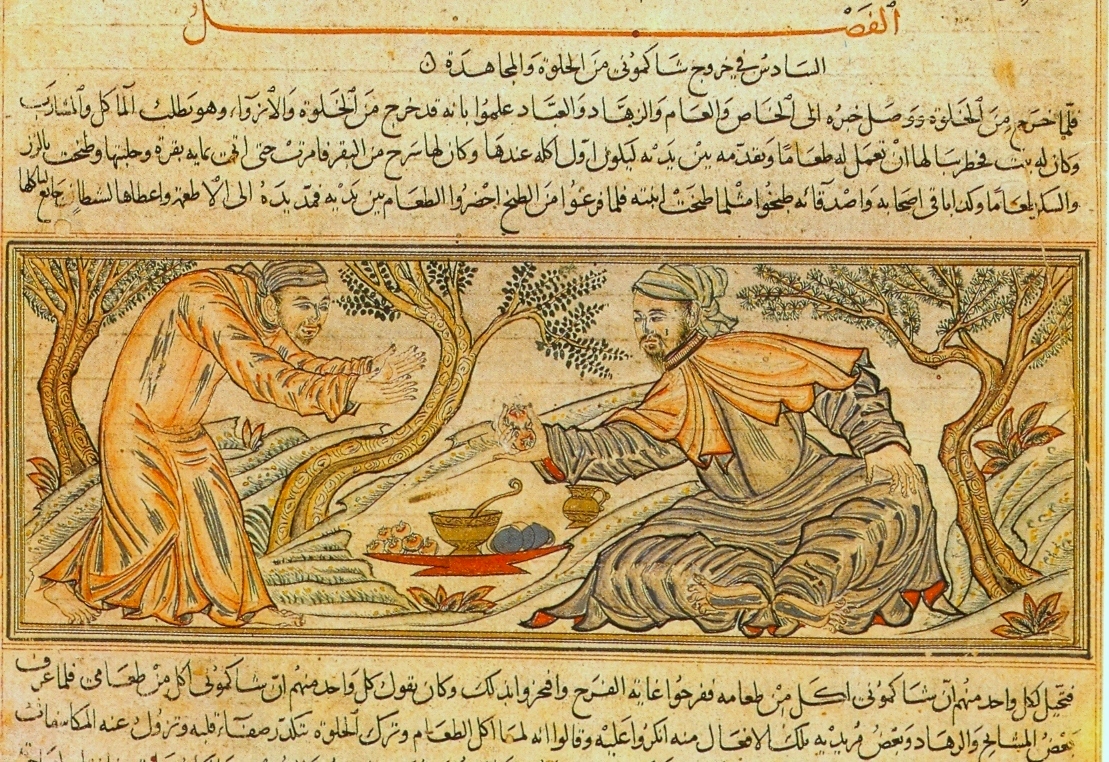 الفصل
السادس في خروج شاكموني من الخلوة والمجاهدة
فلما خرج من الخلوة ووصل خبره الى الخاص والعام والزهاد والعباد علموا بانه قد خرج من الخلوة والانزواء وهو يطلب المآكل والمشارب
وكان له بنت فخطر ببالها ان تعمل له طعاما وتقدمه بين يديه ليكون اول اكله عندها وكان لها سرح من البقر فامرت حتى اتى بمايه بقرة وحلبتها وطبخت بالرز
والسكر طعاما وكذا باقي اصحابه واصدقائه طبخوا مثلما طبخت ابنته فلما فرغوا من الطبخ احضروا الطعام بين يديه فمد يده الى الاطعمة واعطاها الشيطان
فتخيل لكل واحد منهم ان شاكموني اكل من طعامه ففرحوا غاية الفرح وافتخروا بذلك وكان يقول كل واحد منهم ان شاكموني اكل من طعامي فلما عرف
بعض المشائخ والزهاد وبعض مريديه تلك الافعال منه انكروا عليه وقالوا انه لما اكل الطعام وترك الخلوة تتكدر صفاء قلبه وتزول عنه المكاشفات